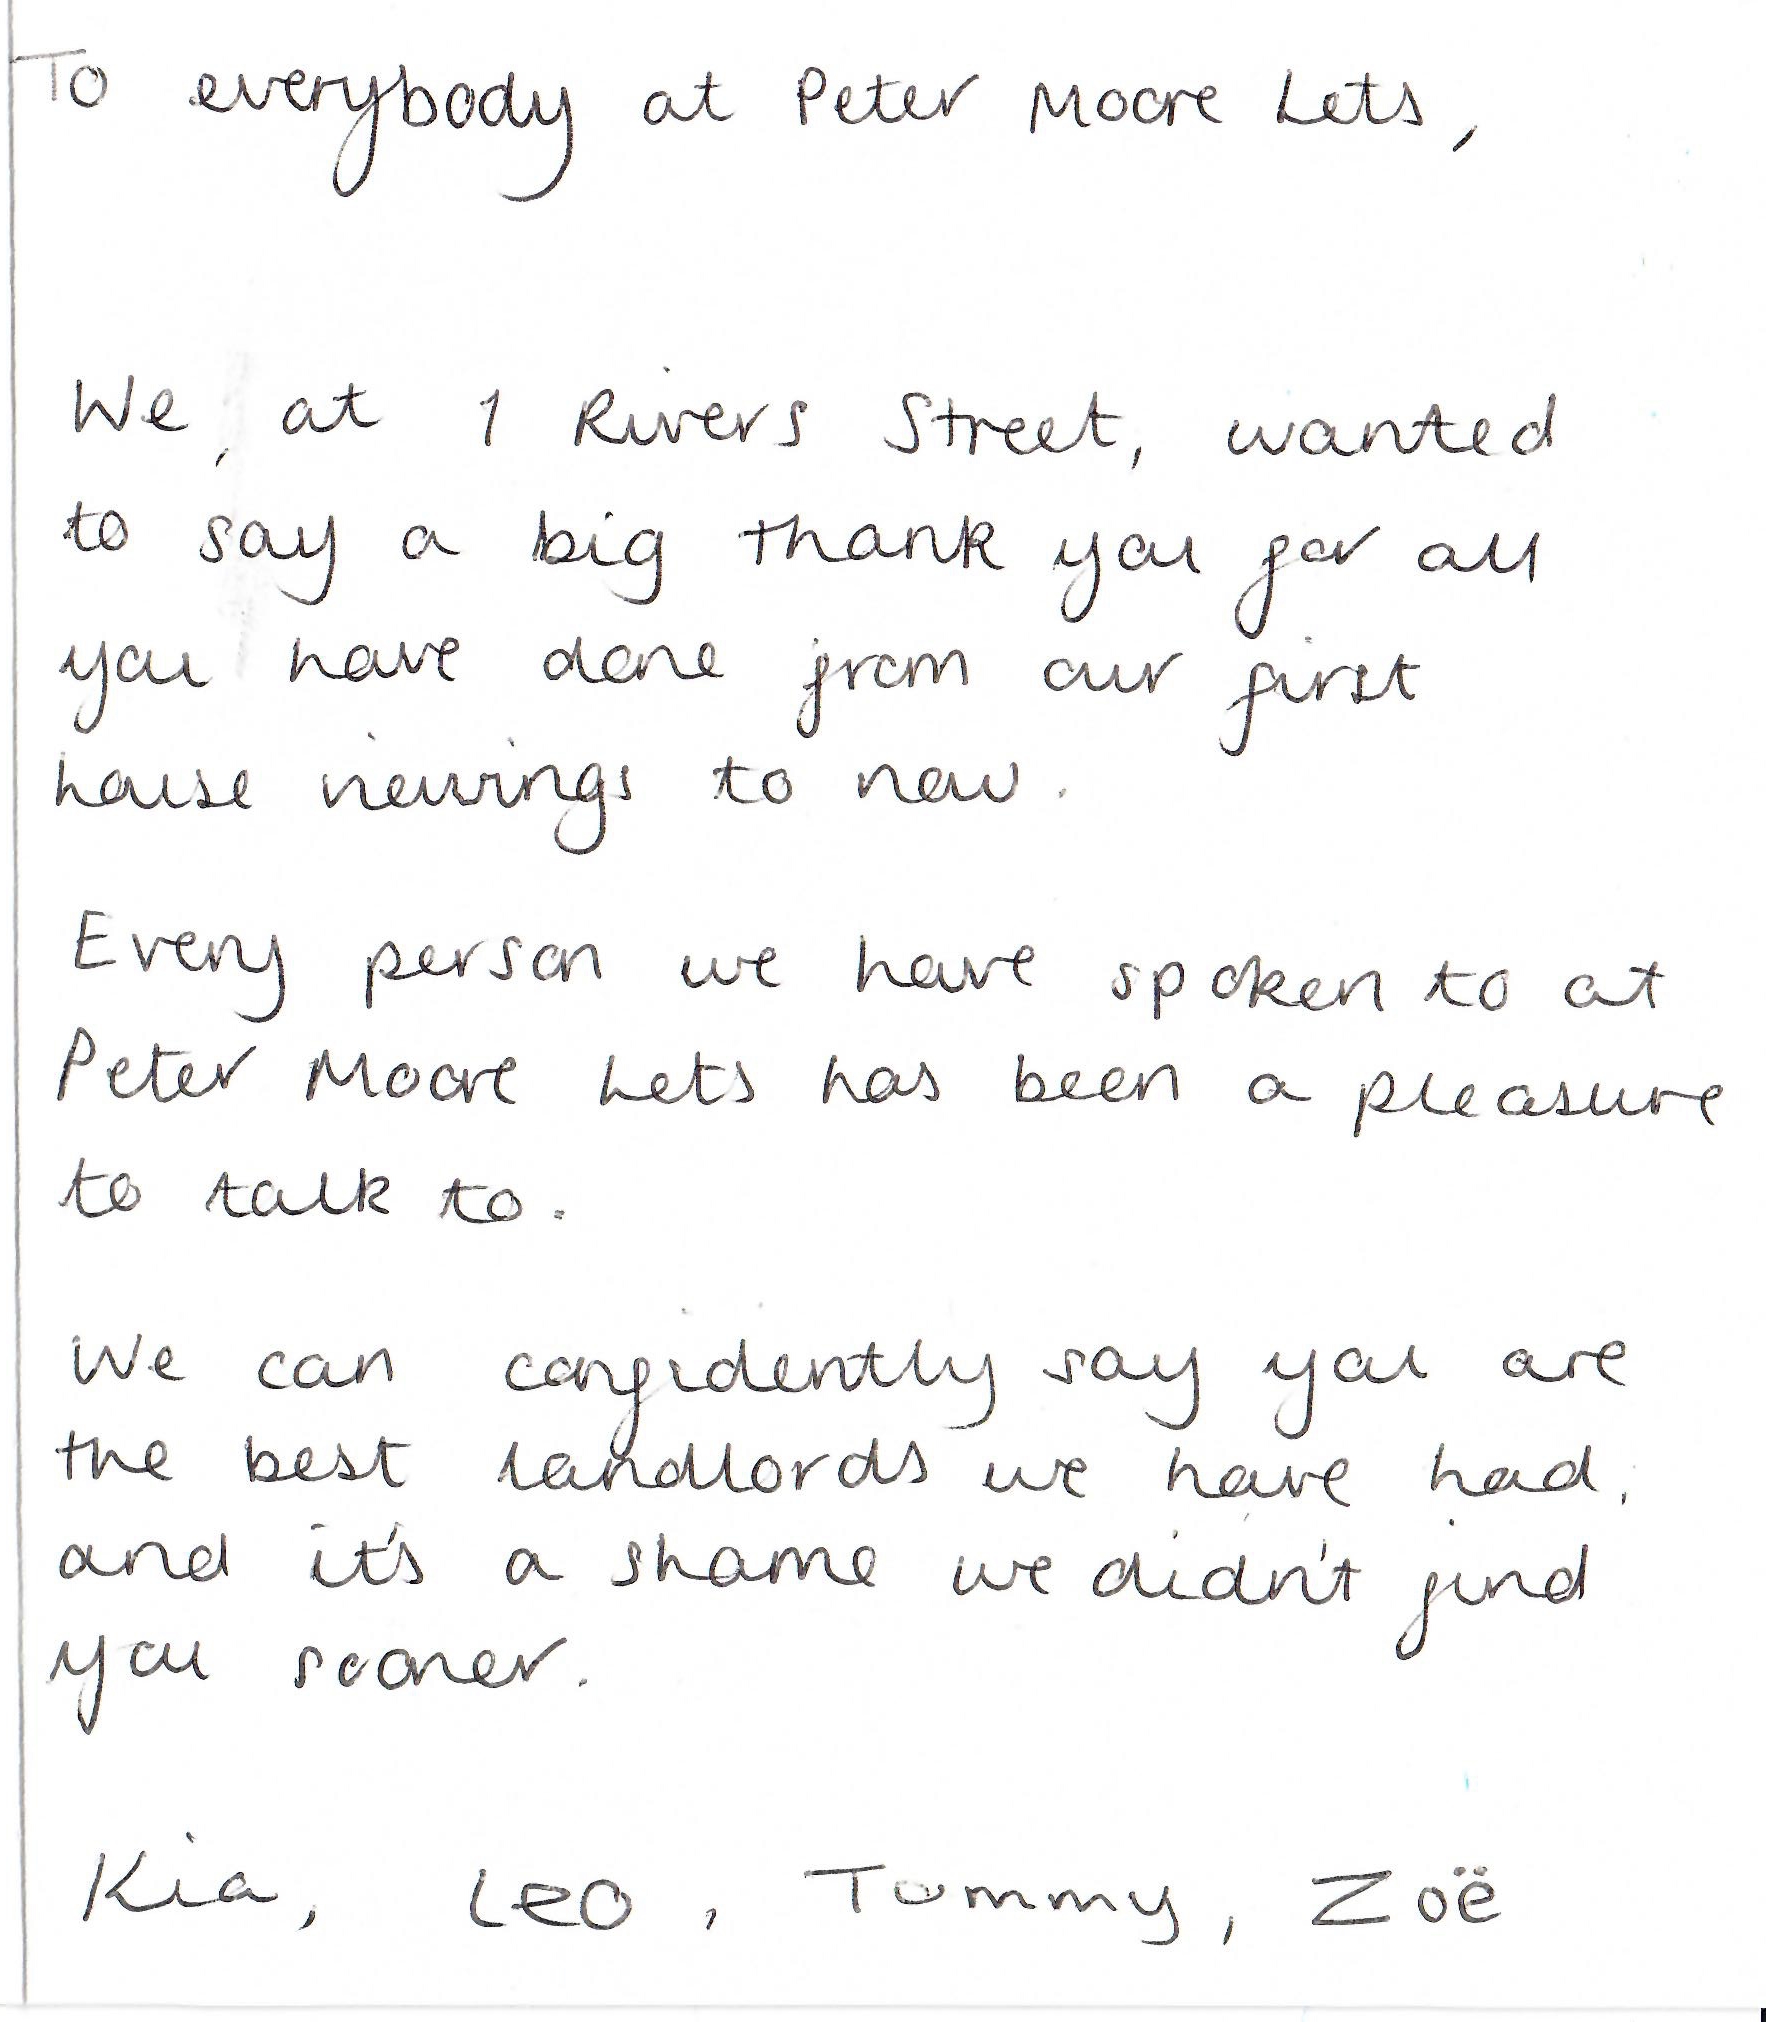 To everybody at Peter Moore Lets,
We, at 1 Rivers Street, wanted
to say a big thank you for all
you have done from our first
house viewings to now.
Every person we have spoken to at
Peter Moore Lets has been a pleasure
to talk to.
We can confidently say you are
the best landlords we have had,
and it's a shame we didn't find
you sooner.
Kia, Leo, Tommy, Zoë